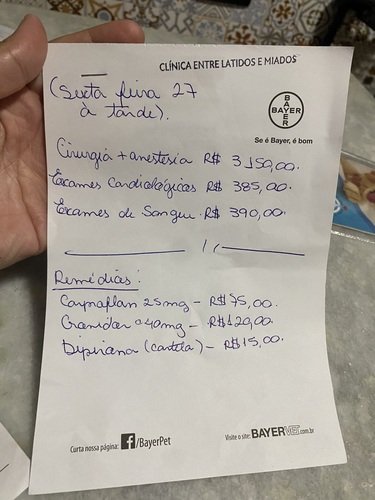 CLÍNICA ENTRE LATIDOS E MIADOS
(Sexta feira 27
à tarde).
BAYER
BAYER
Se é Bayer, é bom
Cirurgia + anestesia R$ 3150,00.
Exames Cardiológicos R$ 385,00.
Exames de Sangue. R$ 390,00.
Remédios:
25mg - R$ 75,00.
40mg - R$ 120,00.
Dipirona (cartela) - R$ 15,00.
Curta nossa página: f/BayerPet
Visite o site: BAYERVET.com.br